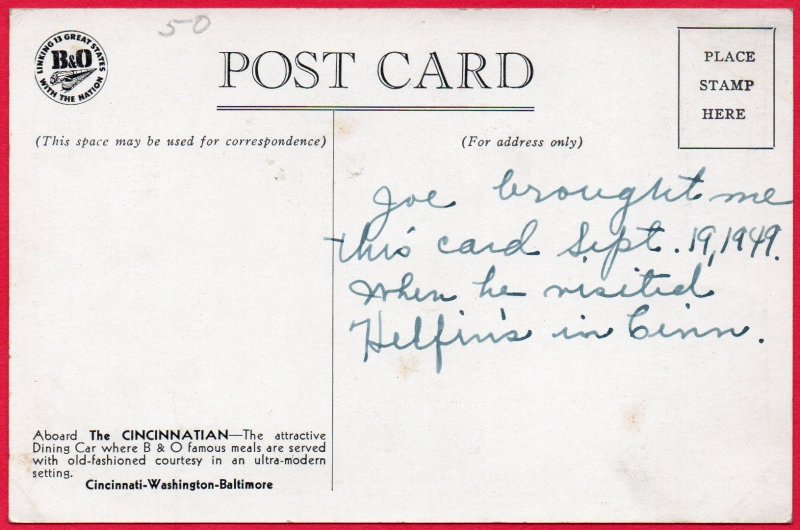 50
LINKING 13 GREAT STATES
B&O
WITH THE NATION
POST CARD
PLACE
STAMP
HERE
(This space may be used for correspondence)
(For address only)
Joe brought me
this card Sept. 19, 1949.
When he visited
Helfin's in Cinn.
Aboard The CINCINNATIAN—The attractive
Dining Car where B & O famous meals are served
with old-fashioned courtesy in an ultra-modern
setting.
Cincinnati-Washington-Baltimore